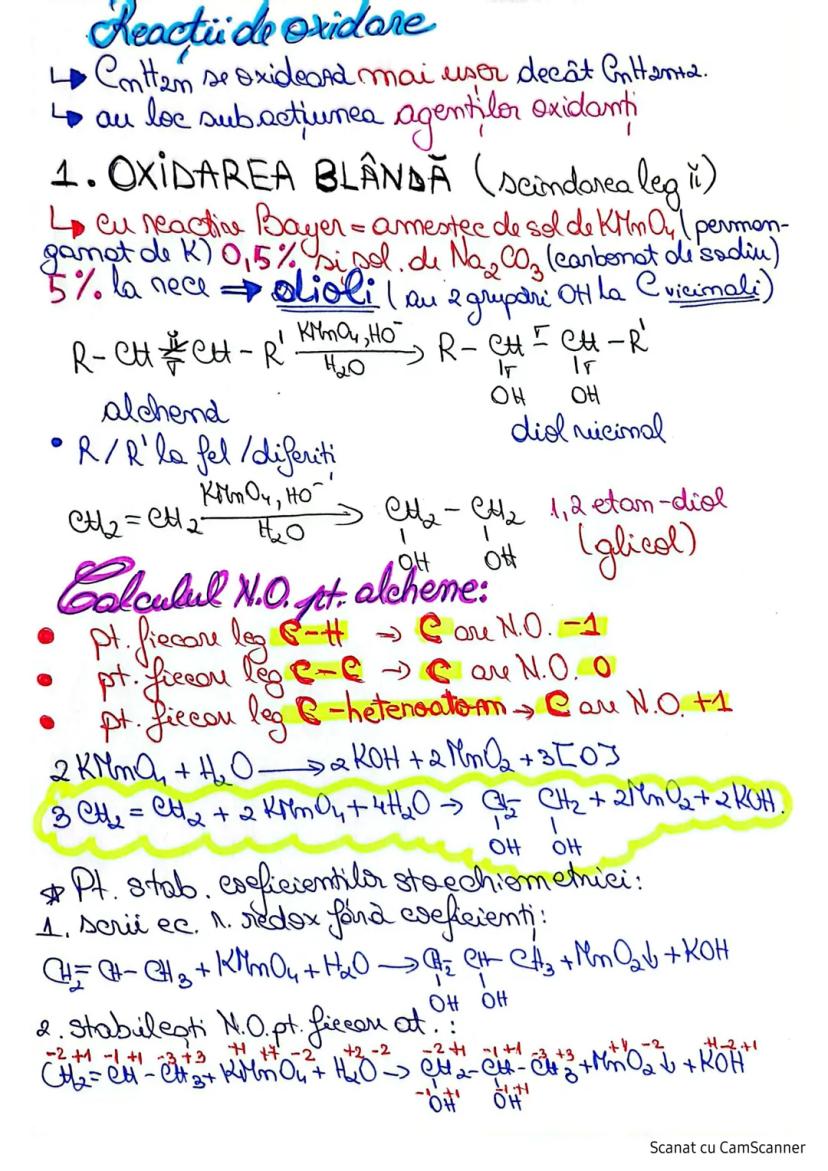 Reacții de oxidare
↳ CnH2n se oxidează mai ușor decât CnH2n+2.
↳ au loc sub acțiunea agenților oxidanți
1. OXIDAREA BLÂNDĂ (scindarea leg π)
↳ cu reactiv Bayer = amestec de sol de KMnO4 (perman-
ganat de K) 0,5% și sol. de Na2CO3 (carbonat de sodiu)
5% la rece ⇒ dioli (au 2 grupări OH la C vicinali)
R - CH = CH - R' KMnO4, HO⁻ / H2O → R - CH - CH - R'
OH OH
alchenă diol vicinal
• R/R' la fel / diferiți
CH2 = CH2 KMnO4, HO⁻ / H2O → CH2 - CH2 1,2 etan-diol
OH OH (glicol)
Calculul N.O. pt. alchene:
• pt. fiecare leg C-H → C are N.O. -1
• pt. fiecare leg C-C → C are N.O. 0
• pt. fiecare leg C-heteroatom → C are N.O. +1
2 KMnO4 + H2O → 2 KOH + 2 MnO2 + 3[O]
3 CH2 = CH2 + 2 KMnO4 + 4H2O → CH2- CH2 + 2MnO2 + 2 KOH.
OH OH
* Pt. stab. coeficienților stoechiometrici:
1. scrii ec. r. redox fără coeficienți:
CH2= CH- CH3 + KMnO4 + H2O → CH2- CH- CH3 + MnO2↓ + KOH
OH OH
2. stabilești N.O. pt. fiecare at.:
-2 +1 -1 +1 -3 +3 +1 +7 -2 +2 -2 -2 +1 -1 +1 -3 +3 +4 -2 +1 -2 +1
CH2= CH - CH3 + KMnO4 + H2O → CH2 - CH - CH3 + MnO2↓ + KOH
-1 +1 -1 +1
OH OH
Scanat cu CamScanner